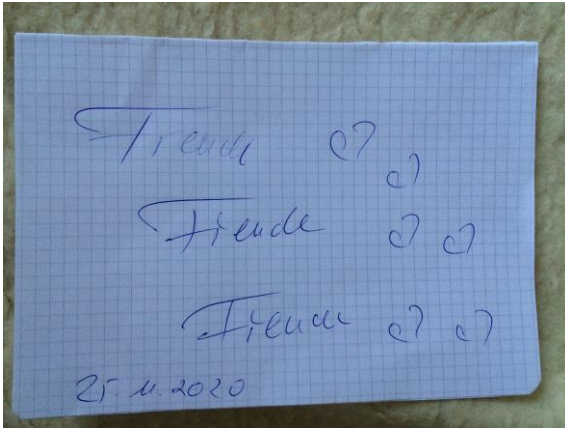 Freude
Freude
Freude
25.11.2020